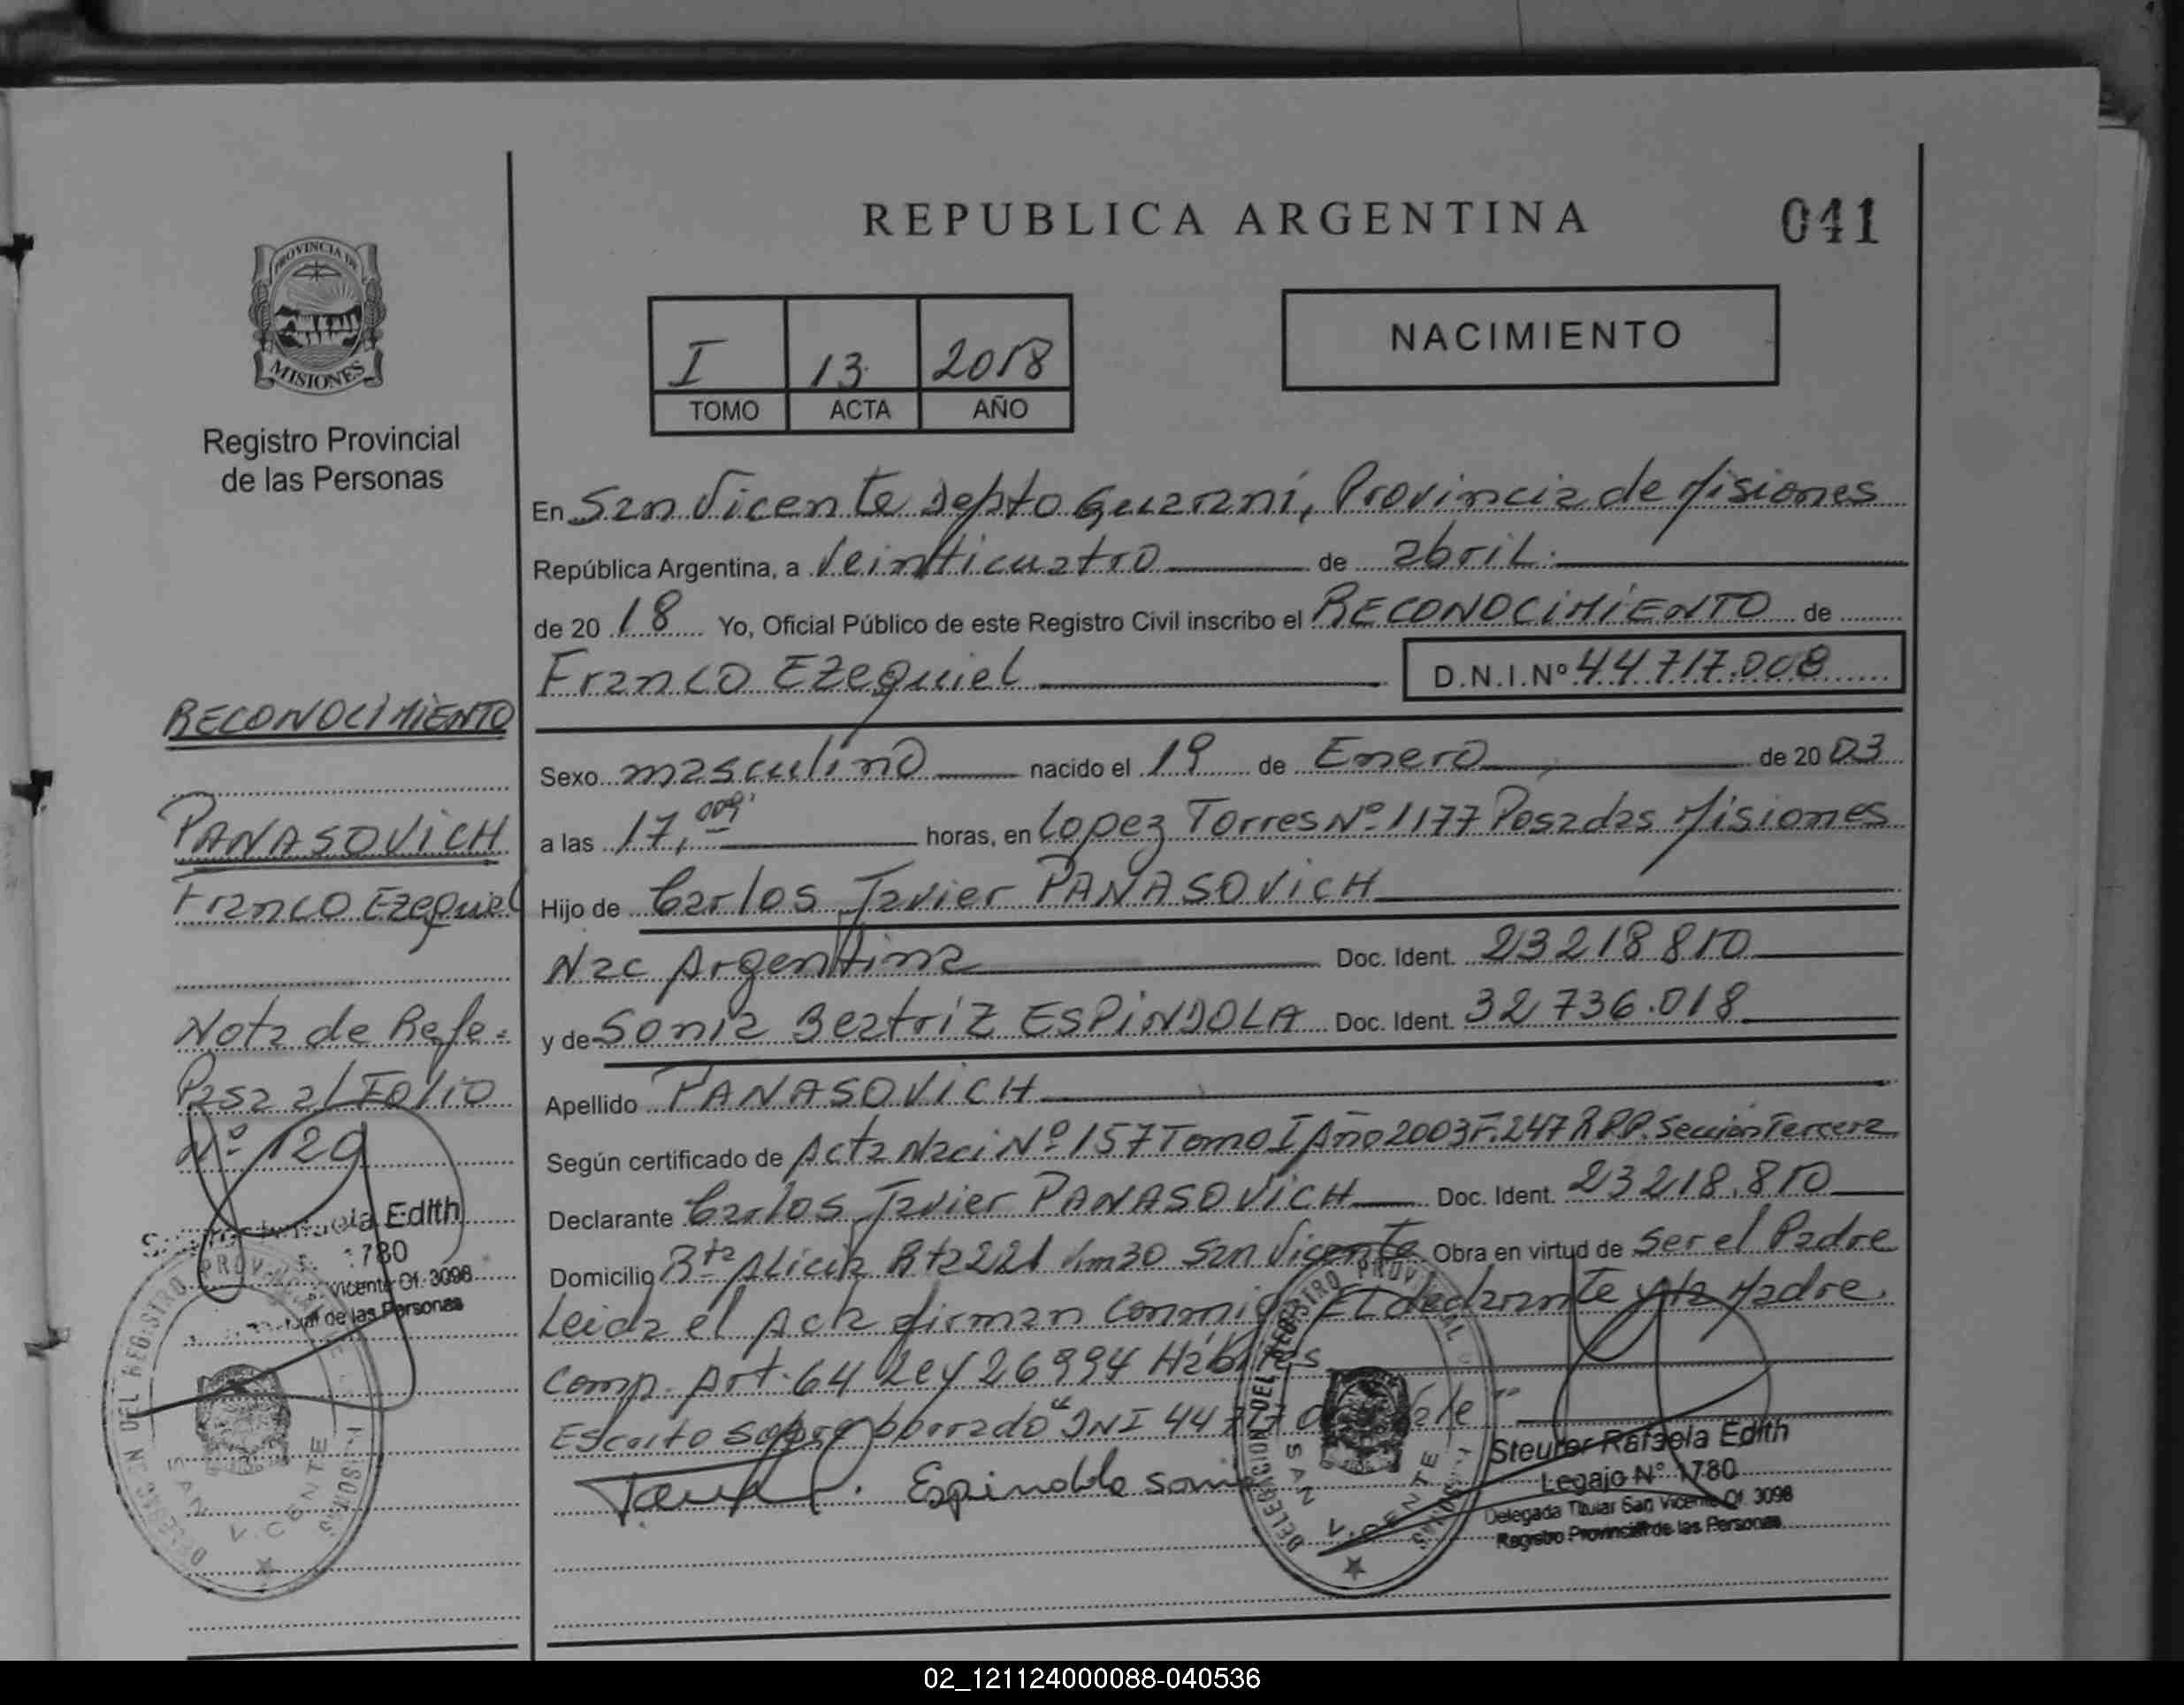 REPUBLICA ARGENTINA
041
PROVINCIA DE
MISIONES
Registro Provincial
de las Personas
I 13 2018
TOMO ACTA AÑO
NACIMIENTO
En San Vicente Depto Guarani, Provincia de Misiones
República Argentina, a Veinticuatro de abril.
de 20 18 Yo, Oficial Público de este Registro Civil inscribo el RECONOCIMIENTO de
Franco Ezequiel D.N.I.Nº 44717.008
Sexo masculino nacido el 19 de Enero de 20 03
a las 17, horas, en Lopez Torres Nº 1177 Posadas Misiones
Hijo de Carlos Javier PANASOVICH
Nac Argentina Doc. Ident. 23218810
y de Sonia Beatriz ESPINDOLA Doc. Ident. 32736.018
Apellido PANASOVICH
Según certificado de Acta Naci Nº 157 Tomo I Año 2003 F. 247 RPP. Sección Tercera
Declarante Carlos Javier PANASOVICH Doc. Ident. 23218.810
Domicilio Bta Alicia Rta 221 km30 San Vicente Obra en virtud de Ser el Padre
Leida el Acta firman Conmigo El declarante y la Madre.
Comp. Art. 64 Ley 26994 Hábiles
Escrito sobre borrado "DNI 44717
Espindola Soni
Steurer Rafaela Edith
Legajo Nº 1780
Delegada Titular San Vicente Of. 3098
Registro Provincial de las Personas
DELEGACION DEL REGISTRO PROVINCIAL
SAN VICENTE
MISIONES
RECONOCIMIENTO
PANASOVICH
Franco Ezequiel
Nota de Refe=
Pasa al FOLIO
Nº 129
Edith
1780
Vicente Of. 3098
de las Personas
DEL REGISTRO
SAN VICENTE
02_121124000088-040536